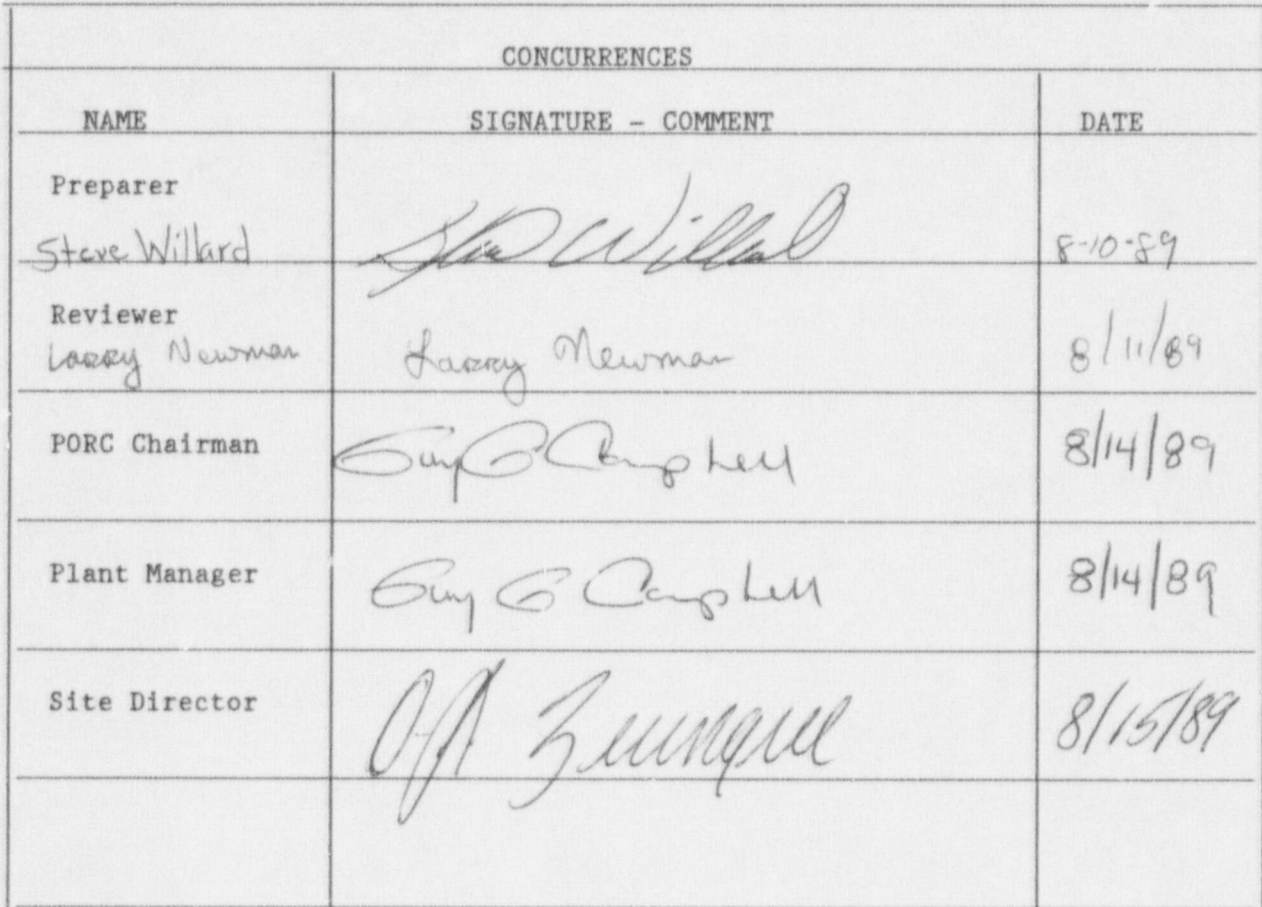 CONCURRENCES
NAME SIGNATURE - COMMENT DATE
Preparer
Steve Willard Steve Willard 8-10-89
Reviewer
Larry Newman Larry Newman 8/11/89
PORC Chairman Guy G Campbell 8/14/89
Plant Manager Guy G Campbell 8/14/89
Site Director 8/15/89